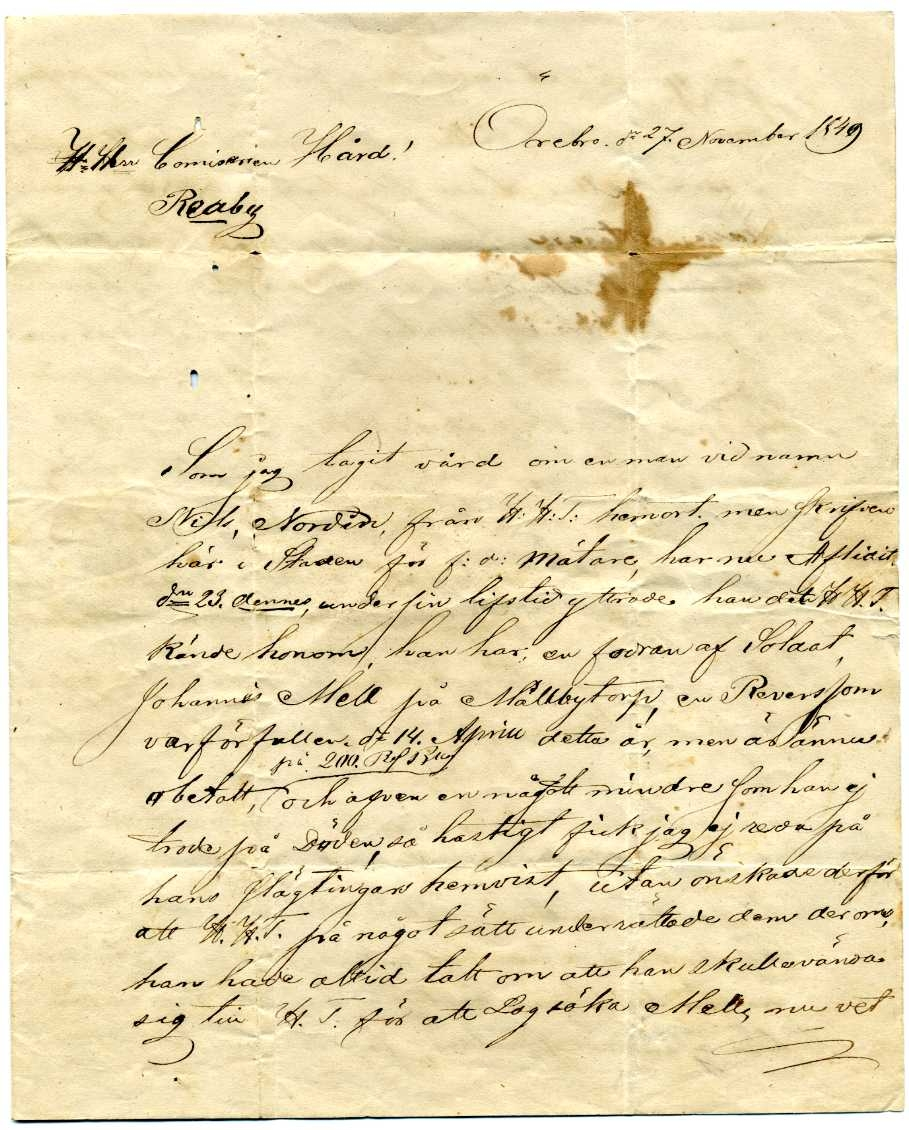 Örebro. dn 27 November 1849
Hr. Herr Comissarien Hård!
Reaby
Som jag tagit vård om en man vid namn
Nils, Nordin, från H: H: T: hemort. men skrifven
här i Staden för f: d: mätare, har nu Aflidit
den 23. dennes, under sin lifstid yttrade han det H H. T.
kände honom, han har, en fodran af Soldat,
Johannes Mell på Mällbytorp, en Revers som
var förfallen dn 14. April detta år, men är ännu
på 200. Rd
obetalt, och äfven en något mindre som han ej
trode på Döden, så hastigt fick jag ej reda på
hans slägtingars hemvist, utan önskade derför
att H. H. T. på något sätt underrättade dem der om,
han hade altid talt om att han skulle vända
sig till H. T. för att Lagsöka Mell, nu vet